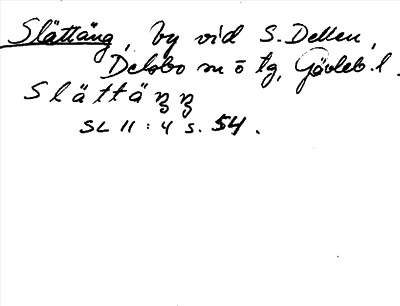 Slättäng, by vid S. Dellen,
Delsbo sn o tg, Gävleb. l.
Slättäŋŋ
SL 11:4 s. 54.